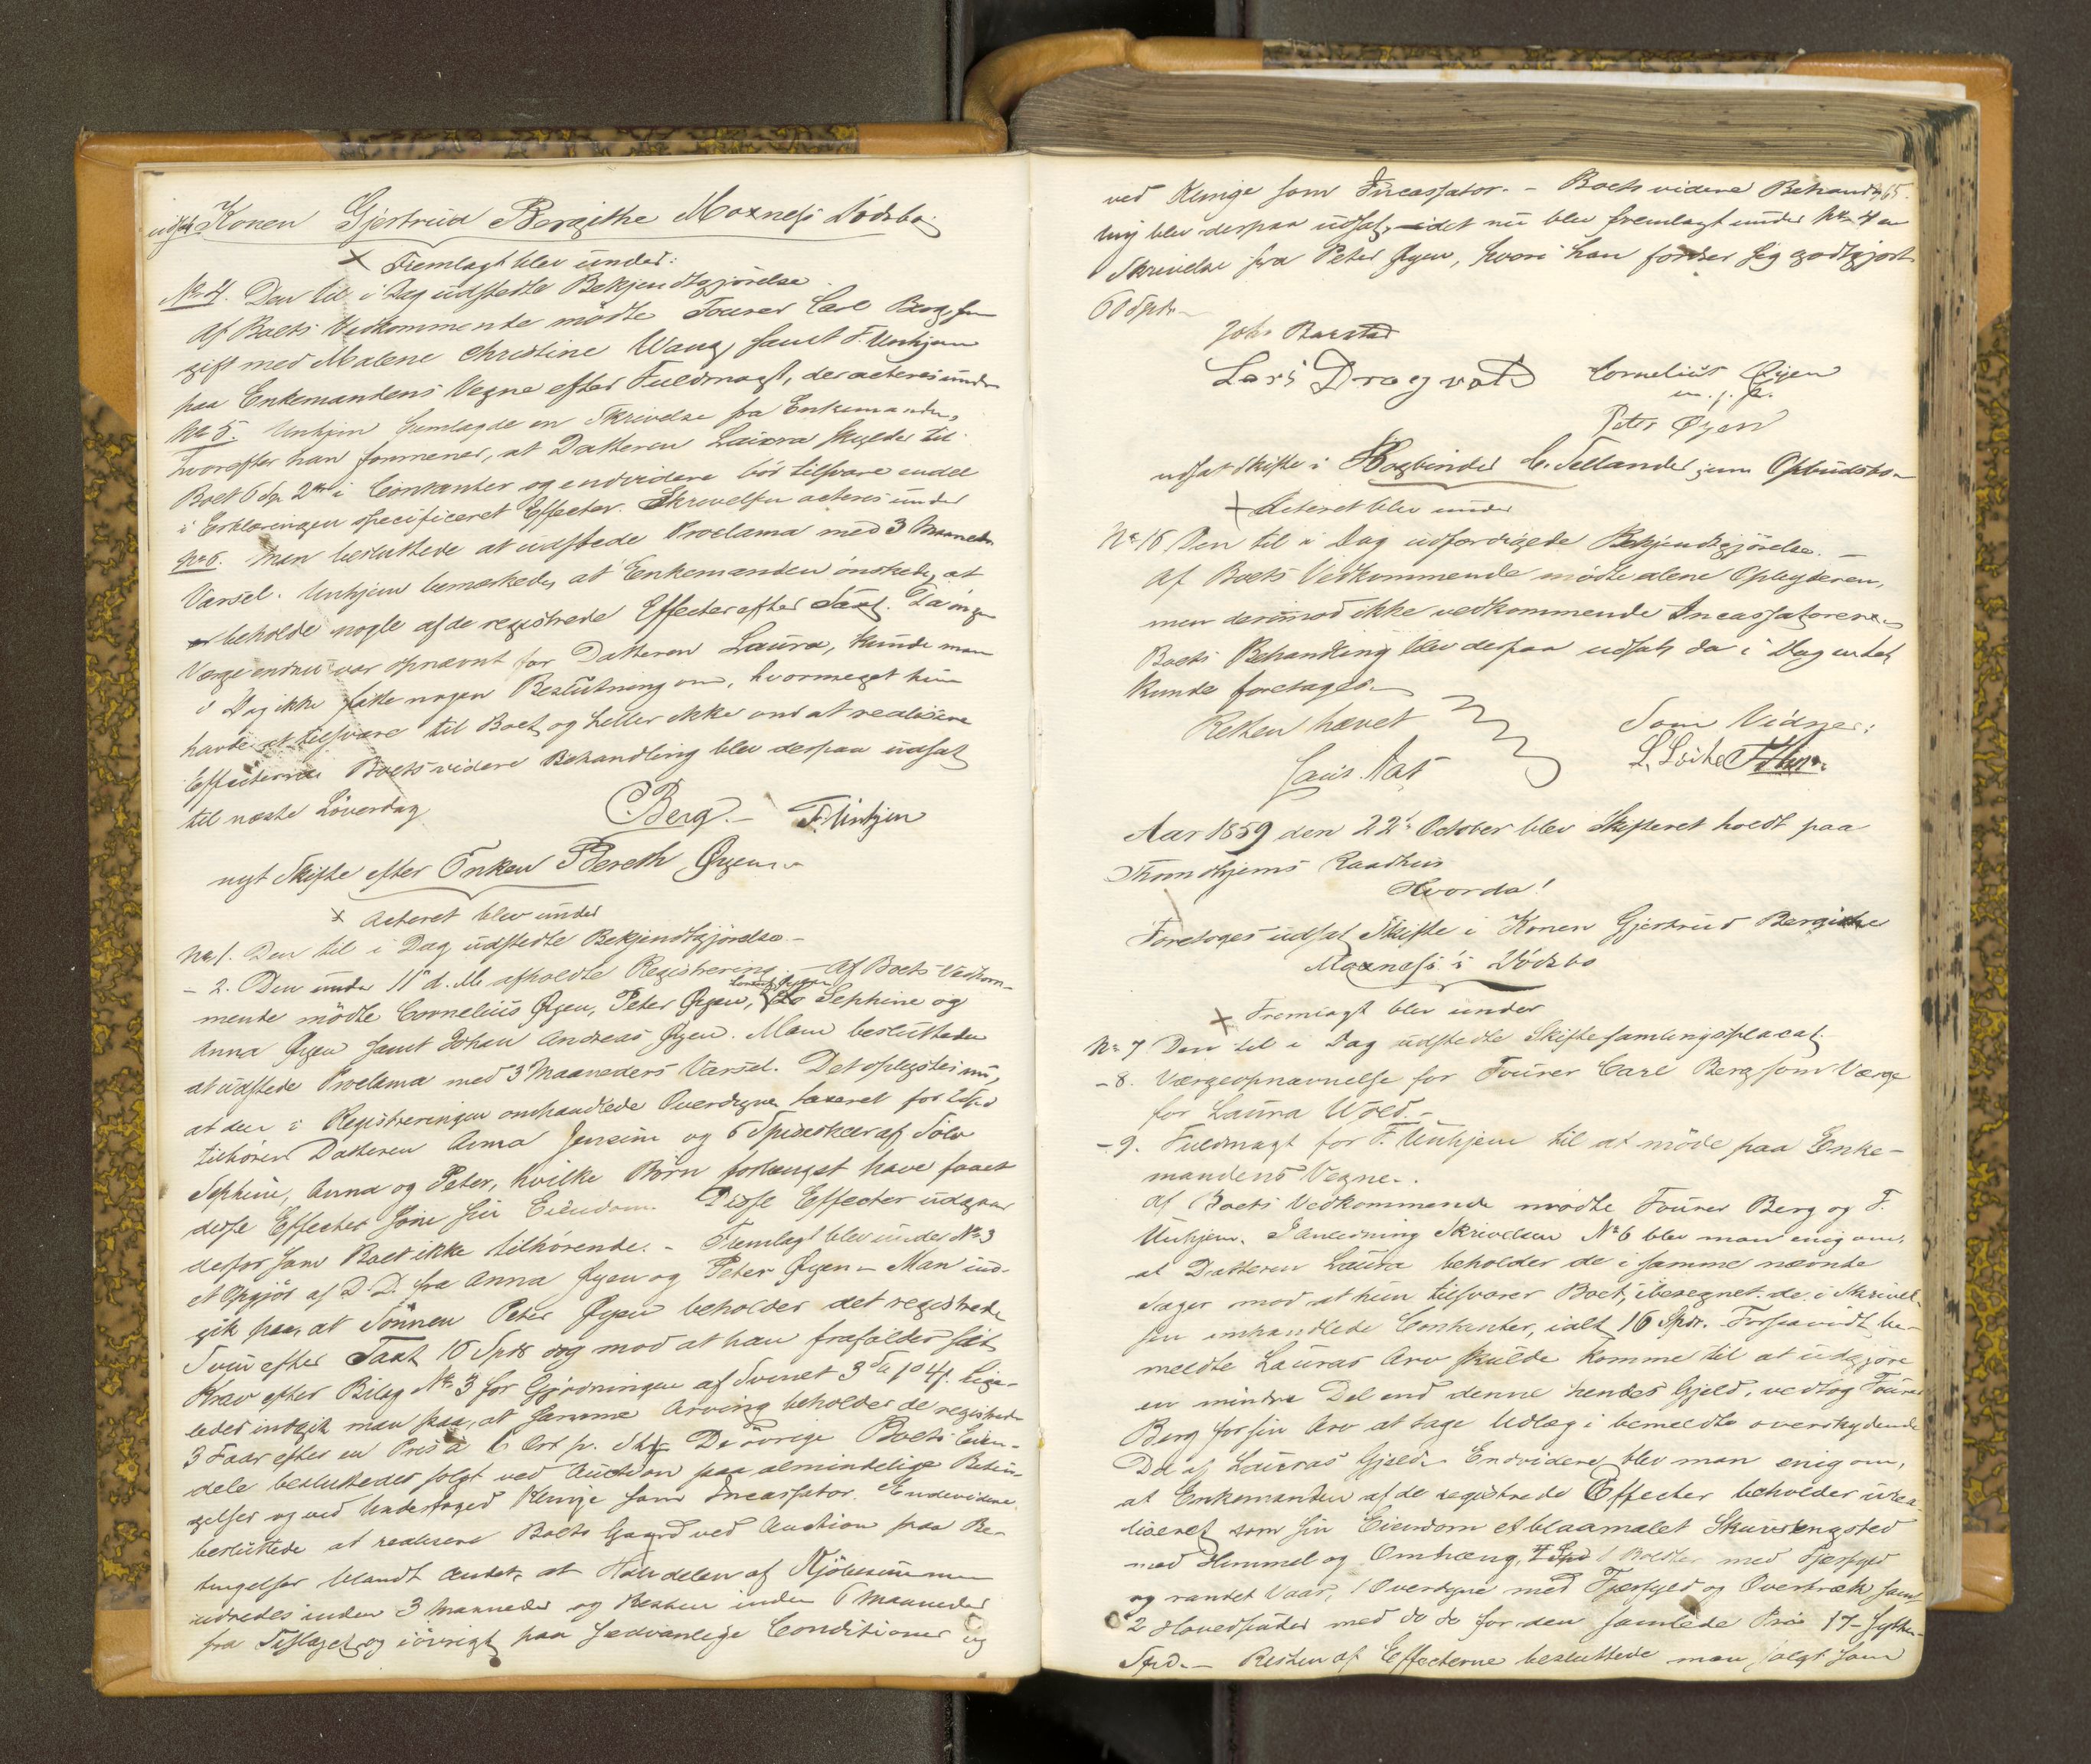 udsat Konen Gjertrud Bergithe Moxness Dødsbo
Fremlagt blev under:
No 4. Den til i Dag udstedte Bekjendtgjörelse
Af Boets Vedkommende mødte Fourer Carl Berg,
gift med Malene Christine Wang, samt F. Unhjem
paa Enkemandens Vegne efter Fuldmagt, der acteres under
No 5. Unhjem fremlagde en Skrivelse fra Enkemanden,
hvorefter han formener, at Datteren Laura skylder til
Boet 6 Sp. 2 i Contanter og endvidere bör tilsvare endel
i Erklæringen specificeret Effecter. Skrivelsen acteres under
No 6. Man besluttede at udstede Proclama med 3 Maaneders
Varsel. Unhjem bemærkede, at Enkemanden ønskede, at
beholde nogle af de registrede Effecter efter Taxt. Da ingen
Værge endnu var opnævnt for Datteren Laura, kunde man
i Dag ikke fatte nogen Beslutning om, hvormeget hun
havde at tilsvare til Boet, og heller ikke om at realisere
Effecterne. Boets videre Behandling blev derpaa udsat
til næste Löverdag
CBerg. – F. Unhjem
nyt Skifte efter Enken Bereth Øyen
Acteret blev under
No 1. Den til i Dag udstedte Bekjendtgjörelse.–
– 2. Den under 11 d. M. afholdte Registrering – Af Boets Vedkom-
mende mödte Cornelius Øyen, Peter Øyen, Sephine og
Anna Øyen samt Johan Andreas Øyen. Man besluttede
at udstede Proclama med 3 Maaneders Varsel. Det oplystes nu,
at den i Registreringen omhandlede Overdyne taxeret for
tilhörer Datteren Anna Jensine og 6 Spiseskeer af Sölv
Sephine, Anna og Peter, hvilke Börn forlængst have faaet
disse Effecter som sin Eiendom. Disse Effecter udgaar
derfor som Boet ikke tilhörende. – Fremlagt blev under No 3
et Opgjör af D. D. fra Anna Øyen og Peter Øyen – Man ind-
gik paa, at Sönnen Peter Øyen beholder det registrede
Sviin efter Taxt 10 Spd og mod at han frafalder sit
Krav efter Bilag No 3 for Gjödningen af Svinet 3 Lige-
ledes indgik man paa, at samme Arving beholder de registrede
3 Faar efter en Priis à 6 Ort pr. Stk. De övrige Boets Eien-
dele besluttedes solgt ved Auction paa almindelige Betin-
gelser og ved Underfoged Klinge som Incassator. Endvidere
besluttede at realisere Boets Gaard ved Auction paa Be-
tingelser blandt Andet, at Halvdelen af Kjöbesummen
udredes inden 3 Maaneder og Resten inden 6 Maaneder
fra Tilslaget, og iövrigt paa sædvanlige Conditioner og
ved Klinge som Incassator. – Boets videre Behand-
65.
ling blev derpaa udsat, idet nu blev fremlagt under No 4 en
Skrivelse fra Peter Øyen, hvori han fordrer sig godtgjort
60 Spd.
Joh. Barstad
Lars Dragvold Cornelius Øyen
m. f. P.
Peter Øyen
udsat Skifte i Bogbinder C. Tellander som Opbudsbo
Acteret blev under
No 16 Den til i Dag udfærdigede Bekjendtgjörelse. –
Af Boets Vedkommende mödte alene Opbyderen,
men derimod ikke vedkommende Incassatorer.
Boets Behandling blev derpaa udsat, da i Dag intet
kunde foretages.
Retten hævet
Som Vidner:
Aar 1859 den 22de October blev Skifteret holdt paa
Throndhjems Raadhus
Hvorda!
Foretoges udsat Skifte i Konen Gjertrud Bergithe
Moxness's Dödsbo
Fremlagt blev under
No 7 Den til i Dag udstedte Skiftesamlingsplacat.
– 8. Værgeopnævnelse for Fourer Carl Berg som Værge
for Laura Wold.–
– 9. Fuldmagt for F. Unhjem til at möde paa Enke-
mandens Vegne.
Af Boets Vedkommende mødte Fourer Berg og F.
Unhjem. I Anledning Skrivelsen No 6 blev man enig om,
at Datteren Laura beholder de i samme nævnte
Sager mod at hun tilsvarer Boet, iberegnet de i Skrivel-
sen omhandlede Contanter, ialt 16 Spd. Forsaavidt be-
meldte Lauras Arv skulde komme til at udgjöre
en mindre Del end denne hendes Gjeld, vedtog Fourer
Berg for sin Arv at tage Udlæg i bemeldte overskydende
Del af Lauras Gjeld. Endvidere blev man enig om,
at Enkemanden af de registrede Effecter beholder urea-
liseret som sin Eiendom et blaamalet
med Himmel og Omhæng, 1 Bolster med Fjærfyld
og randet Vaar, 1 Overdyne med Fjærfyld og Overtræk samt
2 Hovedputer med do do for den samlede Priis 17 – sytten –
Spd. – Resten af Effecterne besluttede man solgt som